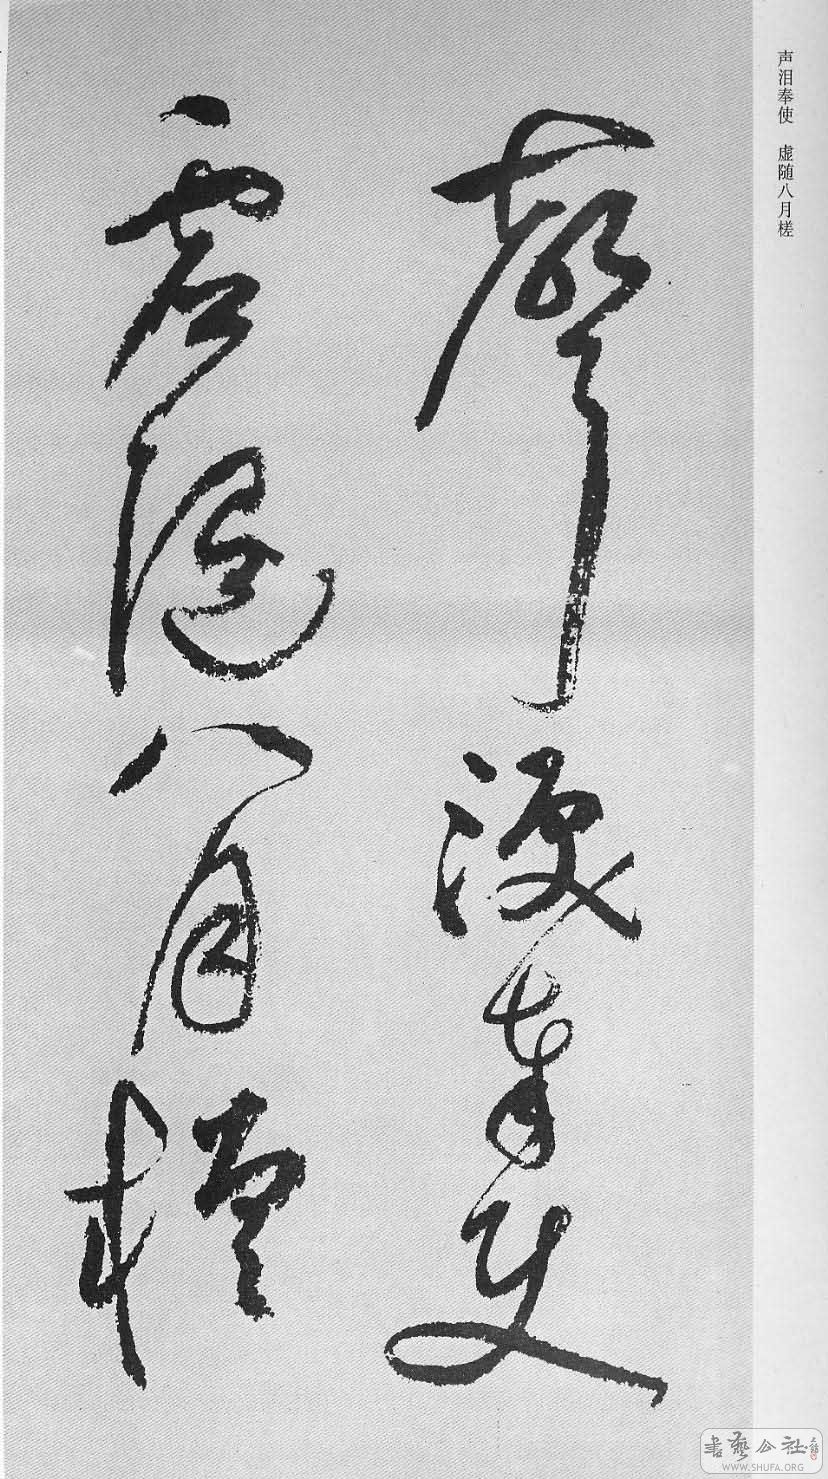 声泪奉使　虚随八月槎
聲淚奉使
虚随八月槎
書藝公社
WWW.SHUFA.ORG